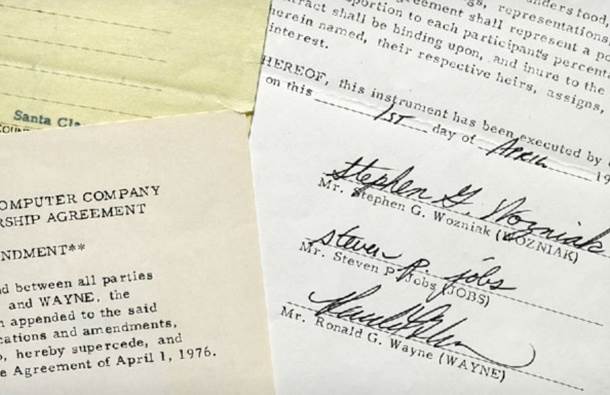 Santa Cla
OMPUTER COMPANY
RSHIP AGREEMENT
NDMENT**
d between all parties
and WAYNE, the
n appended to the said
cations and amendments,
o, hereby supercede, and
e Agreement of April 1, 1976.
representations,
greement shall represent a po
portion to each participant's percent
tract shall be binding upon, and inure to the
erein named, their respective heirs, assigns,
interest.
HEREOF, this instrument has been executed by
on this 1ST day of APRIL 19
Stephen G. Wozniak
Mr. Stephen G. Wozniak (WOZNIAK)
steven p. jobs
Mr. Steven P. Jobs (JOBS)
Mr. Ronald G. Wayne (WAYNE)